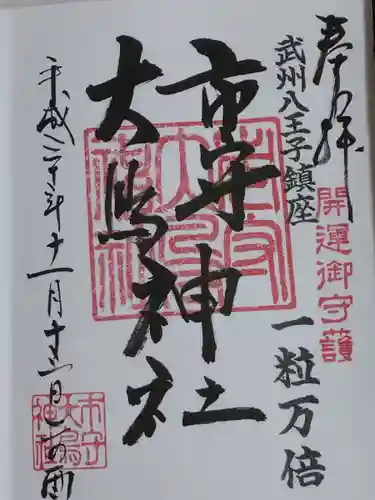 奉拝
開運御守護
武州八王子鎮座
一粒万倍
市守神社
大鳥神社
平成三十年十一月十三日二の酉
市守
大鳥
神社